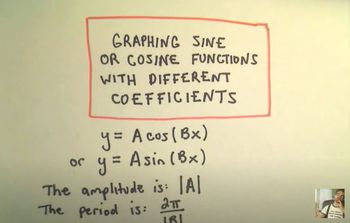 GRAPHING SINE
OR COSINE FUNCTIONS
WITH DIFFERENT
COEFFICIENTS
y = A cos (Bx)
or y = A sin (Bx)
The amplitude is: |A|
The period is: 2π
|B|